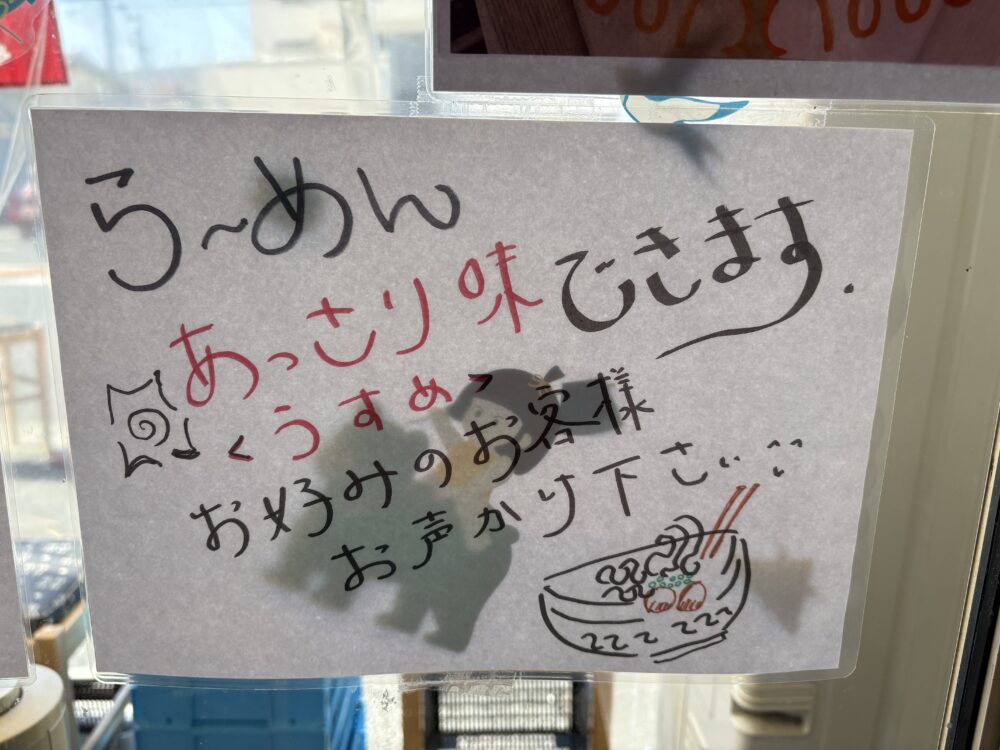 ら〜めん
あっさり味できます.
<うすめ>
お好みのお客様
お声かけ下さい